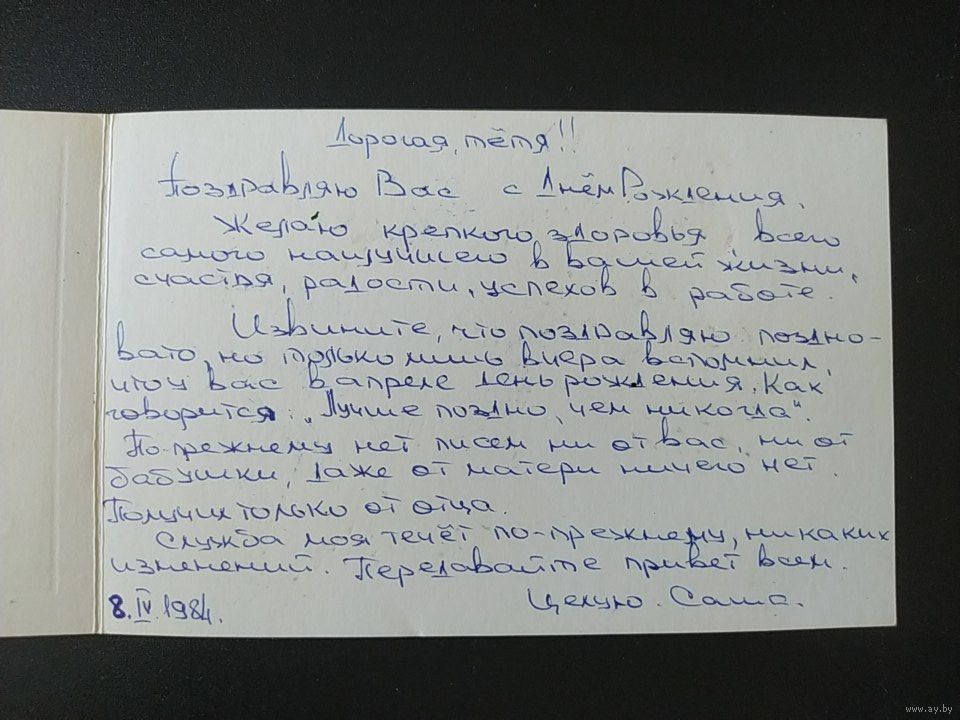 Дорогая, тётя!!
Поздравляю Вас с Днём Рождения.
Желаю крепкого здоровья всего
самого наилучшего в вашей жизни,
счастья, радости, успехов в работе.
Извините, что поздравляю поздно-
вато, но только лишь вчера вспомнил,
что у вас в апреле день рождения. Как
говорится: „Лучше поздно, чем никогда".
По-прежнему нет писем ни от вас, ни от
бабушки, даже от матери ничего нет.
Получил только от отца.
Служба моя течёт по-прежнему, никаких
изменений. Передавайте привет всем.
8.IV.1984. Целую. Саша.
www.ay.by